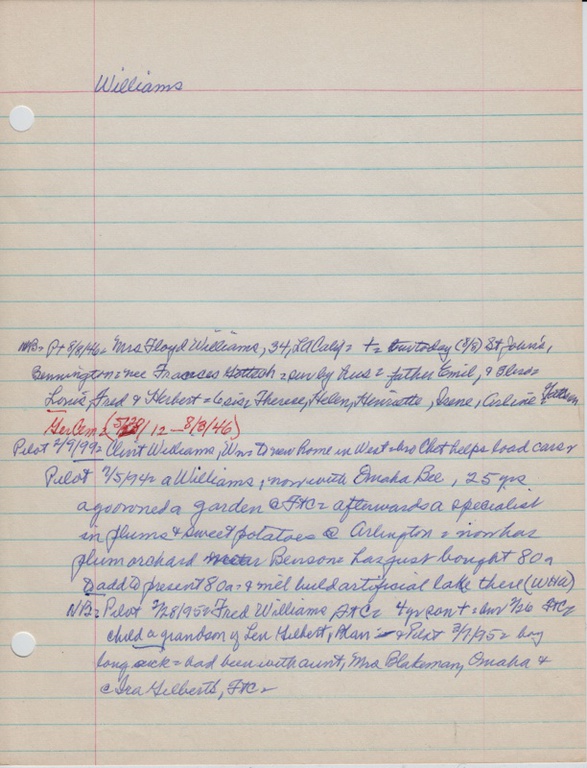 Williams
NB= Pt 8/8/46= Mrs Floyd Williams, 34, LA Calif= += bur today (8/8) St John's,
Bennington= nee Frances = sur by hus= father Emil, 4 bros=
Louis, Fred & Herbert= 6 sis= Therese, Helen, Henrietta, Irene, Arline
Ger Cem= (5/28/12 – 8/3/46)
Pilot 2/9/99= Clint Williams, Wn= To new home in West= bro Chet helps load cars=
Pilot 2/5/94= a Williams, now with Omaha Bee, 25 yrs
ago owned a garden @ FtC= afterwards a specialist
in plums & sweet potatoes @ Arlington= now has
plum orchard near Benson= has just bought 80a
to add to present 80a= & will build artificial lake there (WHW)
NB= Pilot 2/28/95= Fred Williams FtC= 4 yr son += bur 2/26 FtC
child a grandson of Len Hilbert, & Pilot 3/7/95= boy
long sick= had been with aunt, Mrs Blakeman, Omaha &
@ Ira Gilberts, FtC=